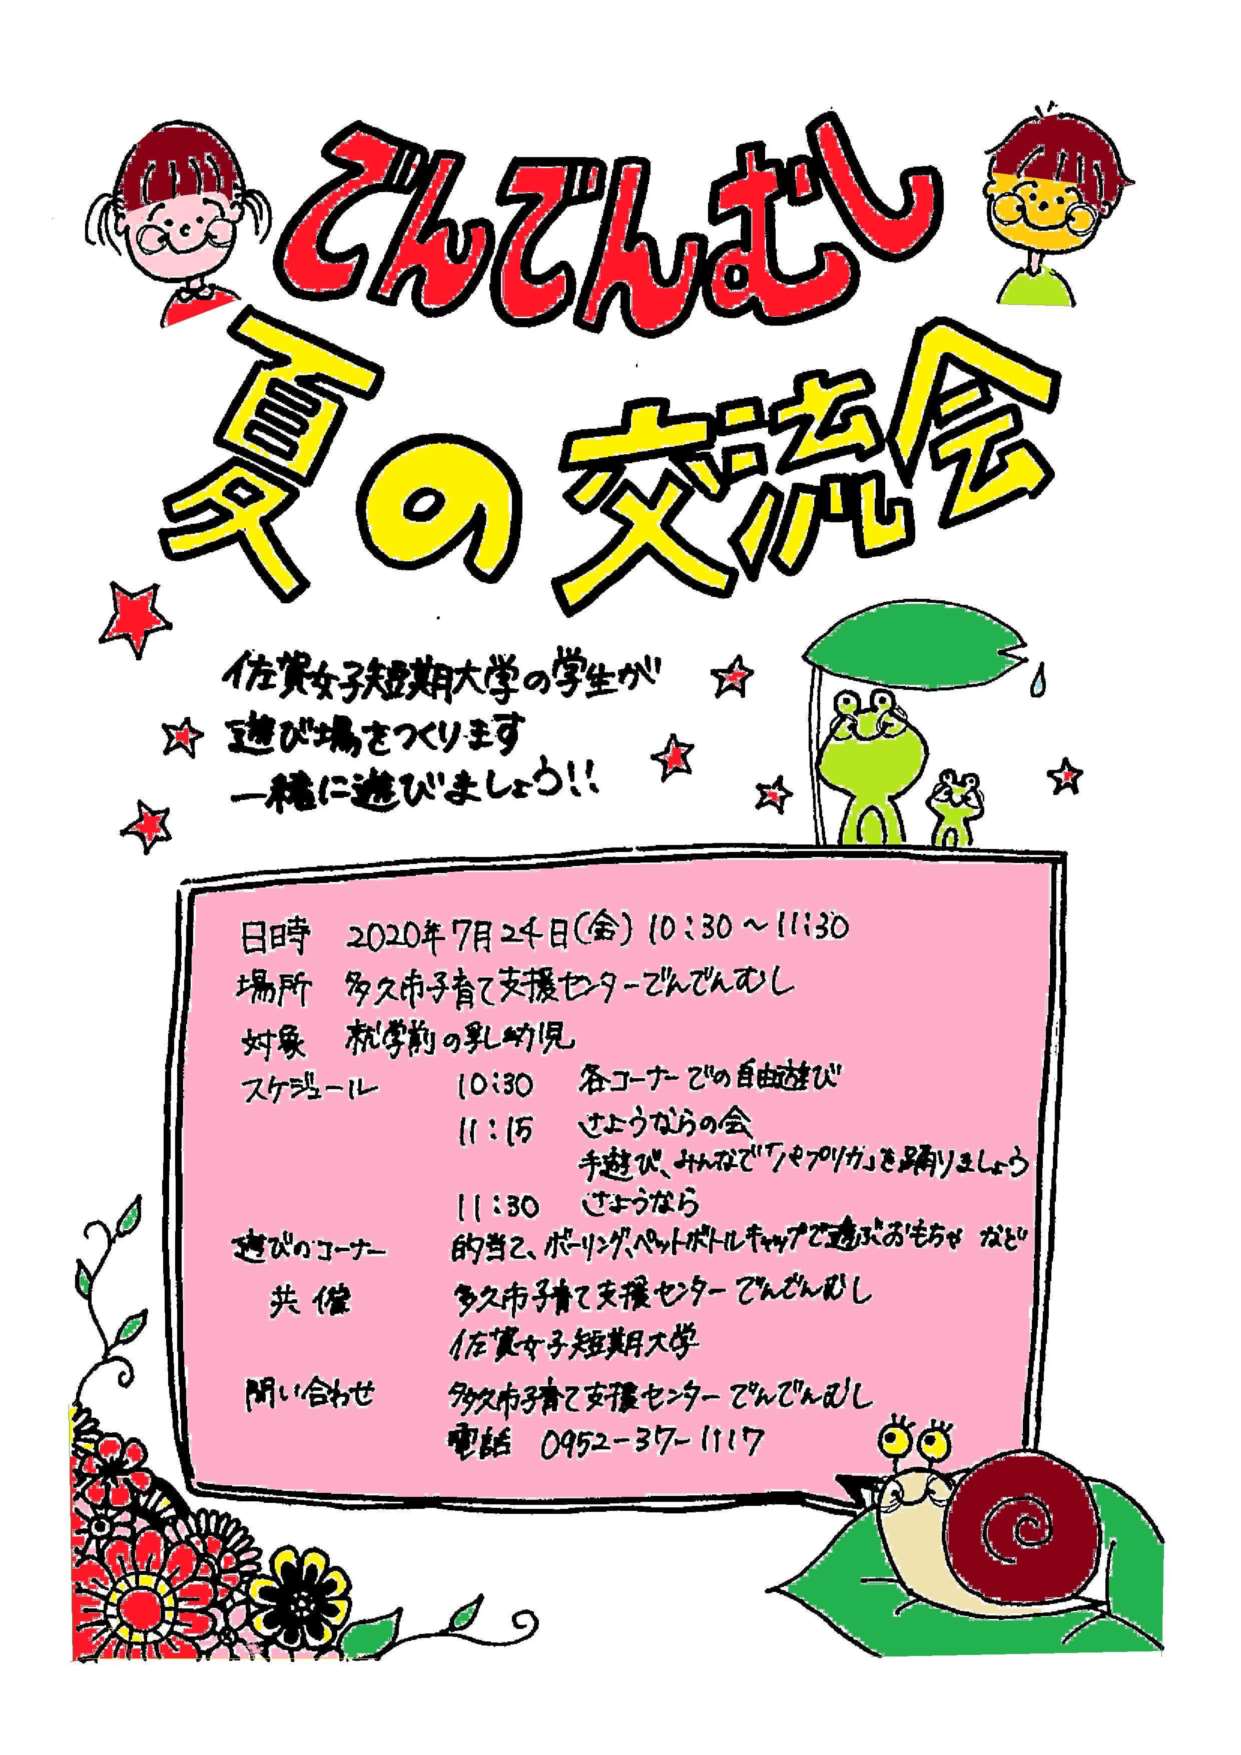 でんでんむし
夏の交流会
佐賀女子短期大学の学生が
遊び場をつくります
一緒に遊びましょう!!
日時 2020年7月24日(金) 10:30～11:30
場所 多久市子育て支援センターでんでんむし
対象 就学前の乳幼児
スケジュール 10:30 各コーナーでの自由遊び
11:15 さようならの会
手遊び、みんなで「パプリカ」を踊りましょう
11:30 さようなら
遊びのコーナー 的当て、ボーリング、ペットボトルキャップで遊ぶおもちゃ など
共催 多久市子育て支援センターでんでんむし
佐賀女子短期大学
問い合わせ 多久市子育て支援センターでんでんむし
電話 0952-37-1117